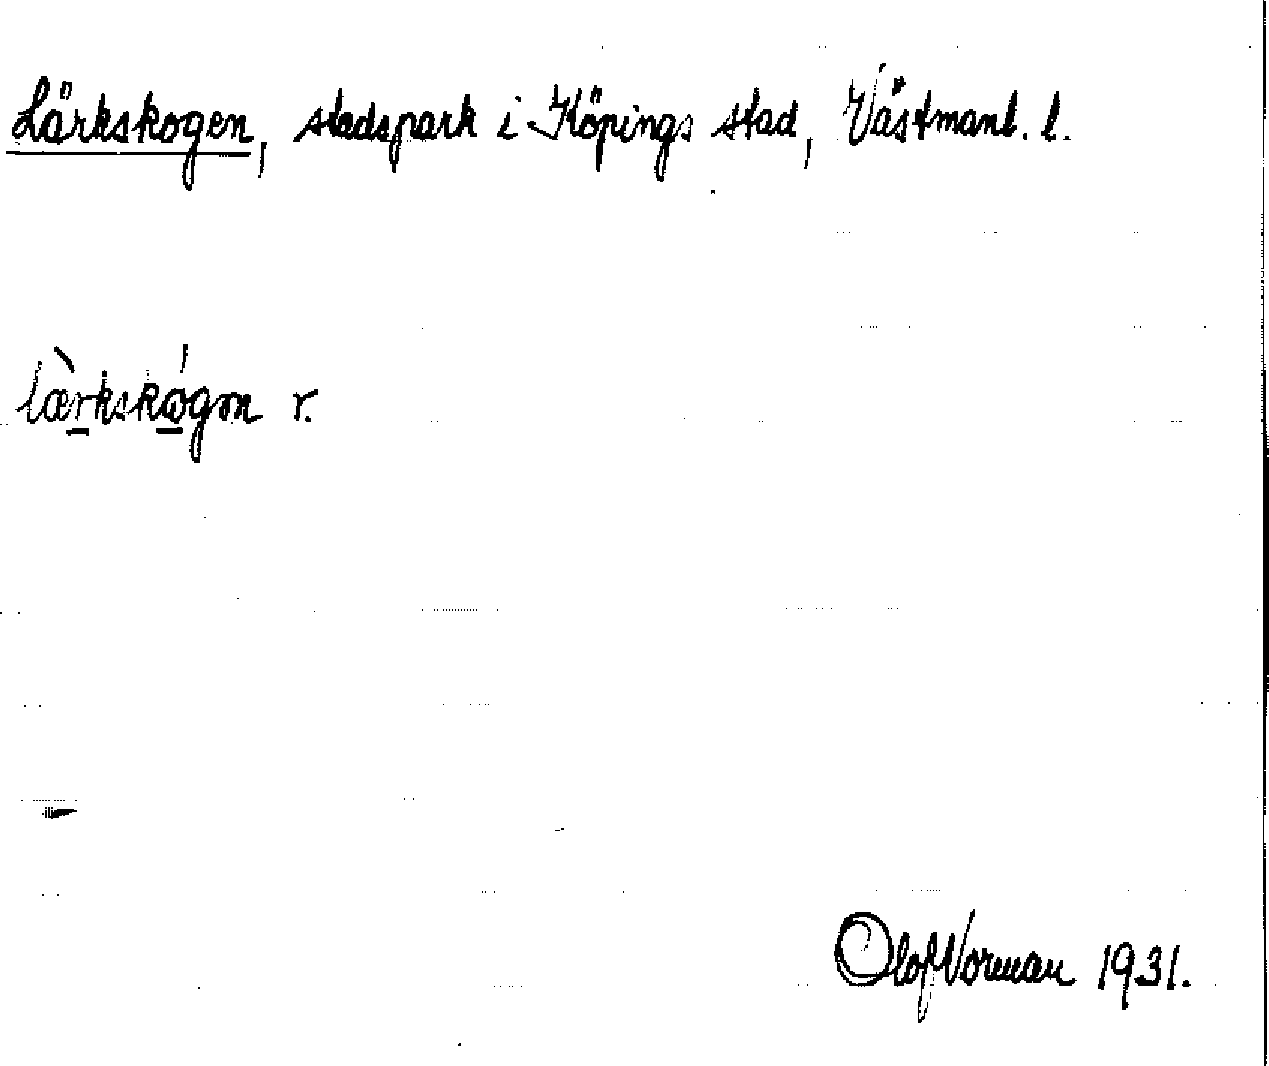 Lärkskogen, stadspark i Köpings stad, Västmanl. l.
lærkskógən r.
Olof Norman 1931.